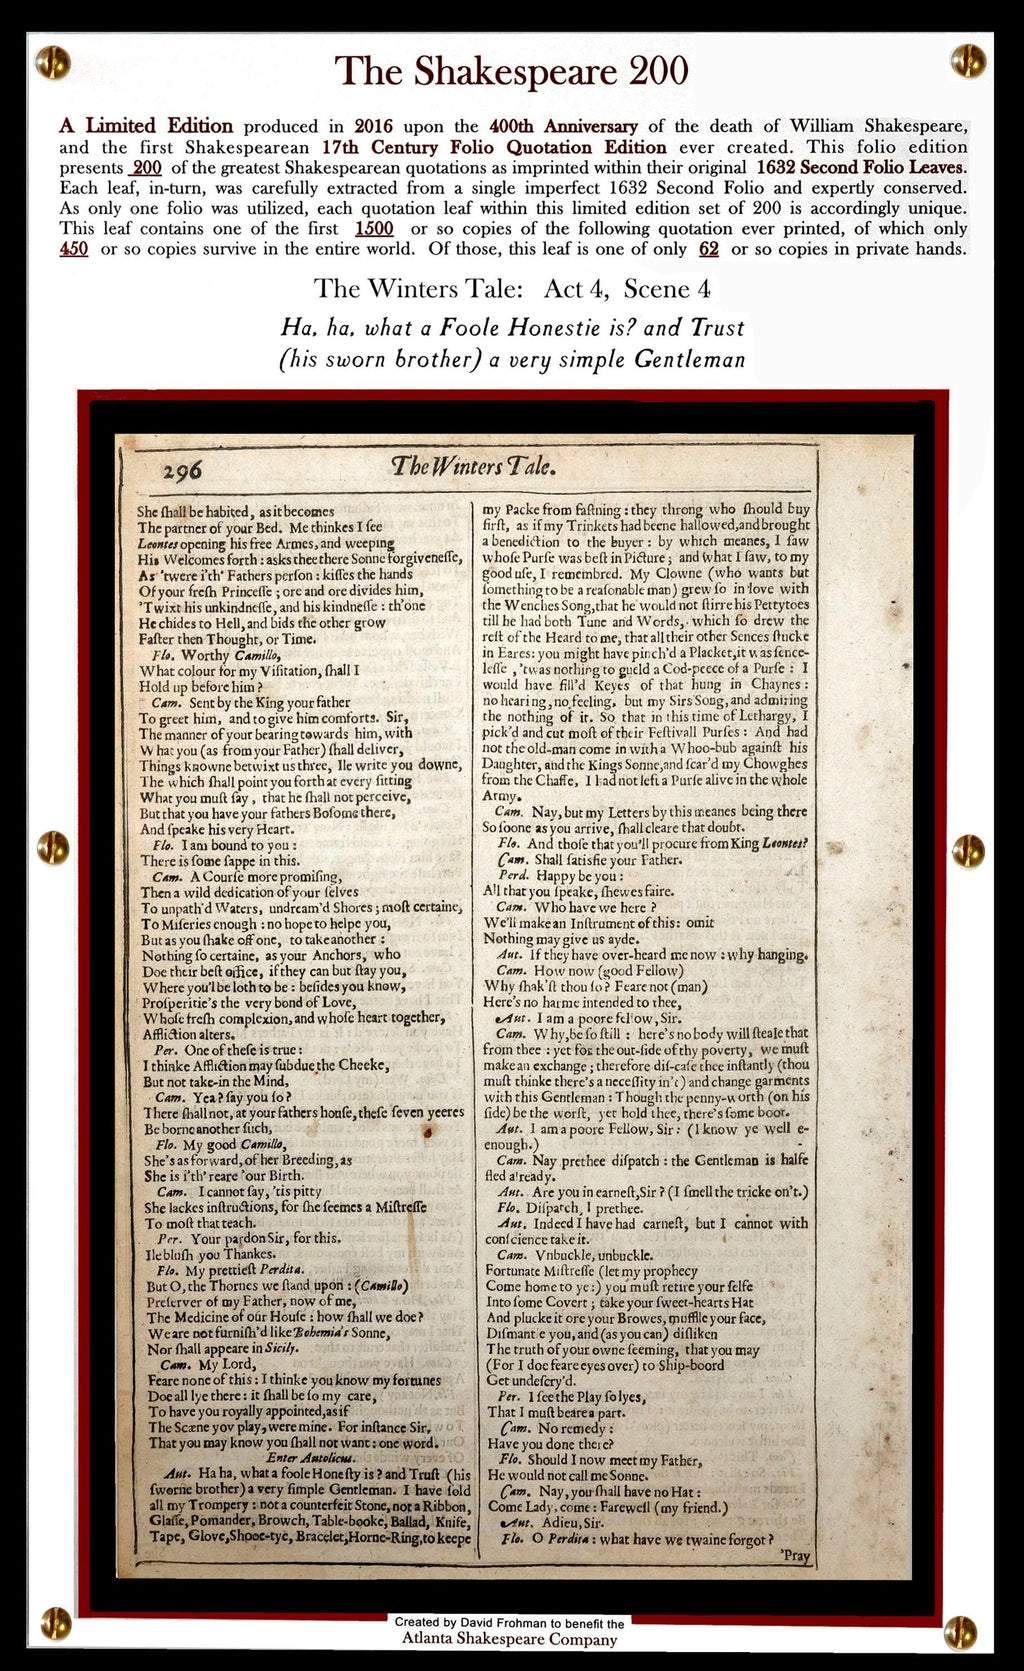 The Shakespeare 200
A Limited Edition produced in 2016 upon the 400th Anniversary of the death of William Shakespeare,
and the first Shakespearean 17th Century Folio Quotation Edition ever created. This folio edition
presents 200 of the greatest Shakespearean quotations as imprinted within their original 1632 Second Folio Leaves.
Each leaf, in-turn, was carefully extracted from a single imperfect 1632 Second Folio and expertly conserved.
As only one folio was utilized, each quotation leaf within this limited edition set of 200 is accordingly unique.
This leaf contains one of the first 1500 or so copies of the following quotation ever printed, of which only
450 or so copies survive in the entire world. Of those, this leaf is one of only 62 or so copies in private hands.
The Winters Tale: Act 4, Scene 4
Ha, ha, what a Foole Honestie is? and Trust
(his sworn brother) a very simple Gentleman
296
The Winters Tale.
She ſhall be habited, as it becomes
The partner of your Bed. Me thinkes I ſee
Leontes opening his free Armes, and weeping
His Welcomes forth : asks thee there Sonne forgiveneſſe,
As 'twere i'th' Fathers perſon : kiſſes the hands
Of your freſh Princeſſe ; ore and ore divides him,
'Twixt his unkindneſſe, and his kindneſſe : th'one
He chides to Hell, and bids the other grow
Faſter then Thought, or Time.
Flo. Worthy Camillo,
What colour for my Viſitation, ſhall I
Hold up before him ?
Cam. Sent by the King your father
To greet him, and to give him comforts. Sir,
The manner of your bearing towards him, with
What you (as from your Father) ſhall deliver,
Things knowne betwixt us three, Ile write you downe,
The which ſhall point you forth at every ſitting
What you muſt ſay , that he ſhall not perceive,
But that you have your fathers Boſome there,
And ſpeake his very Heart.
Flo. I am bound to you :
There is ſome ſappe in this.
Cam. A Courſe more promiſing,
Then a wild dedication of your ſelves
To unpath'd Waters, undream'd Shores ; moſt certaine,
To Miſeries enough : no hope to helpe you,
But as you ſhake off one, to take another :
Nothing ſo certaine, as your Anchors, who
Doe their beſt office, if they can but ſtay you,
Where you'l be loth to be : beſides you know,
Proſperitie's the very bond of Love,
Whoſe freſh complexion, and whoſe heart together,
Affliction alters.
Per. One of theſe is true :
I thinke Affliction may ſubdue the Cheeke,
But not take-in the Mind,
Cam. Yea ? ſay you ſo ?
There ſhall not, at your fathers houſe, theſe ſeven yeeres
Be borne another ſuch,
Flo. My good Camillo,
She's as forward, of her Breeding, as
She is i'th' reare 'our Birth.
Cam. I cannot ſay, 'tis pitty
She lackes inſtructions, for ſhe ſeemes a Miſtreſſe
To moſt that teach.
Per. Your pardon Sir, for this.
Ile bluſh you Thankes.
Flo. My prettieſt Perdita.
But O, the Thornes we ſtand upon : (Camillo)
Preſerver of my Father, now of me,
The Medicine of our Houſe : how ſhall we doe ?
We are not furniſh'd like Bohemia's Sonne,
Nor ſhall appeare in Sicily.
Cam. My Lord,
Feare none of this : I thinke you know my fortunes
Doe all lye there : it ſhall be ſo my care,
To have you royally appointed, as if
The Scæne yov play, were mine. For inſtance Sir,
That you may know you ſhall not want : one word.
Enter Autolicus.
Aut. Ha ha, what a foole Honeſty is ? and Truſt (his
ſworne brother) a very ſimple Gentleman. I have ſold
all my Trompery : not a counterfeit Stone, not a Ribbon,
Glaſſe, Pomander, Browch, Table-booke, Ballad, Knife,
Tape, Glove, Shooe-tye, Bracelet, Horne-Ring, to keepe
my Packe from faſtning : they throng who ſhould buy
firſt, as if my Trinkets had beene hallowed, and brought
a benediction to the buyer : by which meanes, I ſaw
whoſe Purſe was beſt in Picture ; and what I ſaw, to my
good uſe, I remembred. My Clowne (who wants but
ſomething to be a reaſonable man) grew ſo in love with
the Wenches Song, that he would not ſtirre his Pettytoes
till he had both Tune and Words, which ſo drew the
reſt of the Heard to me, that all their other Sences ſtucke
in Eares : you might have pinch'd a Placket, it was ſence-
leſſe , 'twas nothing to gueld a Cod-peece of a Purſe : I
would have fill'd Keyes of that hung in Chaynes :
no hearing, no feeling, but my Sirs Song, and admiring
the nothing of it. So that in this time of Lethargy, I
pick'd and cut moſt of their Feſtivall Purſes : And had
not the old-man come in with a Whoo-bub againſt his
Daughter, and the Kings Sonne, and ſcar'd my Chowghes
from the Chaffe, I had not left a Purſe alive in the whole
Army.
Cam. Nay, but my Letters by this meanes being there
So ſoone as you arrive, ſhall cleare that doubt.
Flo. And thoſe that you'll procure from King Leontes ?
Cam. Shall ſatisfie your Father.
Perd. Happy be you :
All that you ſpeake, ſhewes faire.
Cam. Who have we here ?
We'll make an Inſtrument of this : omit
Nothing may give us ayde.
Aut. If they have over-heard me now : why hanging.
Cam. How now (good Fellow)
Why ſhak'ſt thou ſo ? Feare not (man)
Here's no harme intended to thee,
Aut. I am a poore fellow, Sir.
Cam. Why, be ſo ſtill : here's no body will ſteale that
from thee : yet for the out-ſide of thy poverty, we muſt
make an exchange ; therefore diſ-caſe thee inſtantly (thou
muſt thinke there's a neceſſity in't) and change garments
with this Gentleman : Though the penny-worth (on his
ſide) be the worſt, yet hold thee, there's ſome boot.
Aut. I am a poore Fellow, Sir : (I know ye well e-
enough.)
Cam. Nay prethee diſpatch : the Gentleman is halfe
fled already.
Aut. Are you in earneſt, Sir ? (I ſmell the tricke on't.)
Flo. Diſpatch, I prethee.
Aut. Indeed I have had earneſt, but I cannot with
conſcience take it.
Cam. Vnbuckle, unbuckle.
Fortunate Miſtreſſe (let my prophecy
Come home to ye :) you muſt retire your ſelfe
Into ſome Covert ; take your ſweet-hearts Hat
And plucke it ore your Browes, muffle your face,
Diſmantle you, and (as you can) diſliken
The truth of your owne ſeeming, that you may
(For I doe feare eyes over) to Ship-boord
Get undeſcry'd.
Per. I ſee the Play ſo lyes,
That I muſt beare a part.
Cam. No remedy :
Have you done there?
Flo. Should I now meet my Father,
He would not call me Sonne.
Cam. Nay, you ſhall have no Hat :
Come Lady, come : Farewell (my friend.)
Aut. Adieu, Sir.
Flo. O Perdita : what have we twaine forgot ?
'Pray
Created by David Frohman to benefit the
Atlanta Shakespeare Company